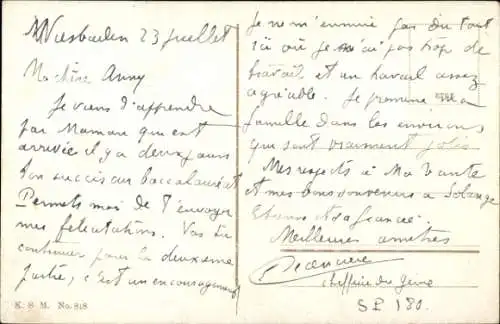 Wiesbaden 23 Juillet
Ma chère Anny
Je viens d'apprendre
par Maman qui est
arrivée il y a deux jours
ton succès au baccalauréat
Permets moi de t'envoyer
mes félicitations. Vas tu
continuer pour la deuxième
partie, c'est un encouragement
K. S M. No. 818
Je ne m'ennuie pas du tout
ici où je n'ai pas trop de
travail et un travail assez
agréable. Je promène ma
famille dans les environs
qui sont vraiment jolis
Mes respects à Ma Tante
et mes bons souvenirs à Solange
Etienne et sa fiancée.
Meilleures amitiés
Officier du Génie
S P 180.